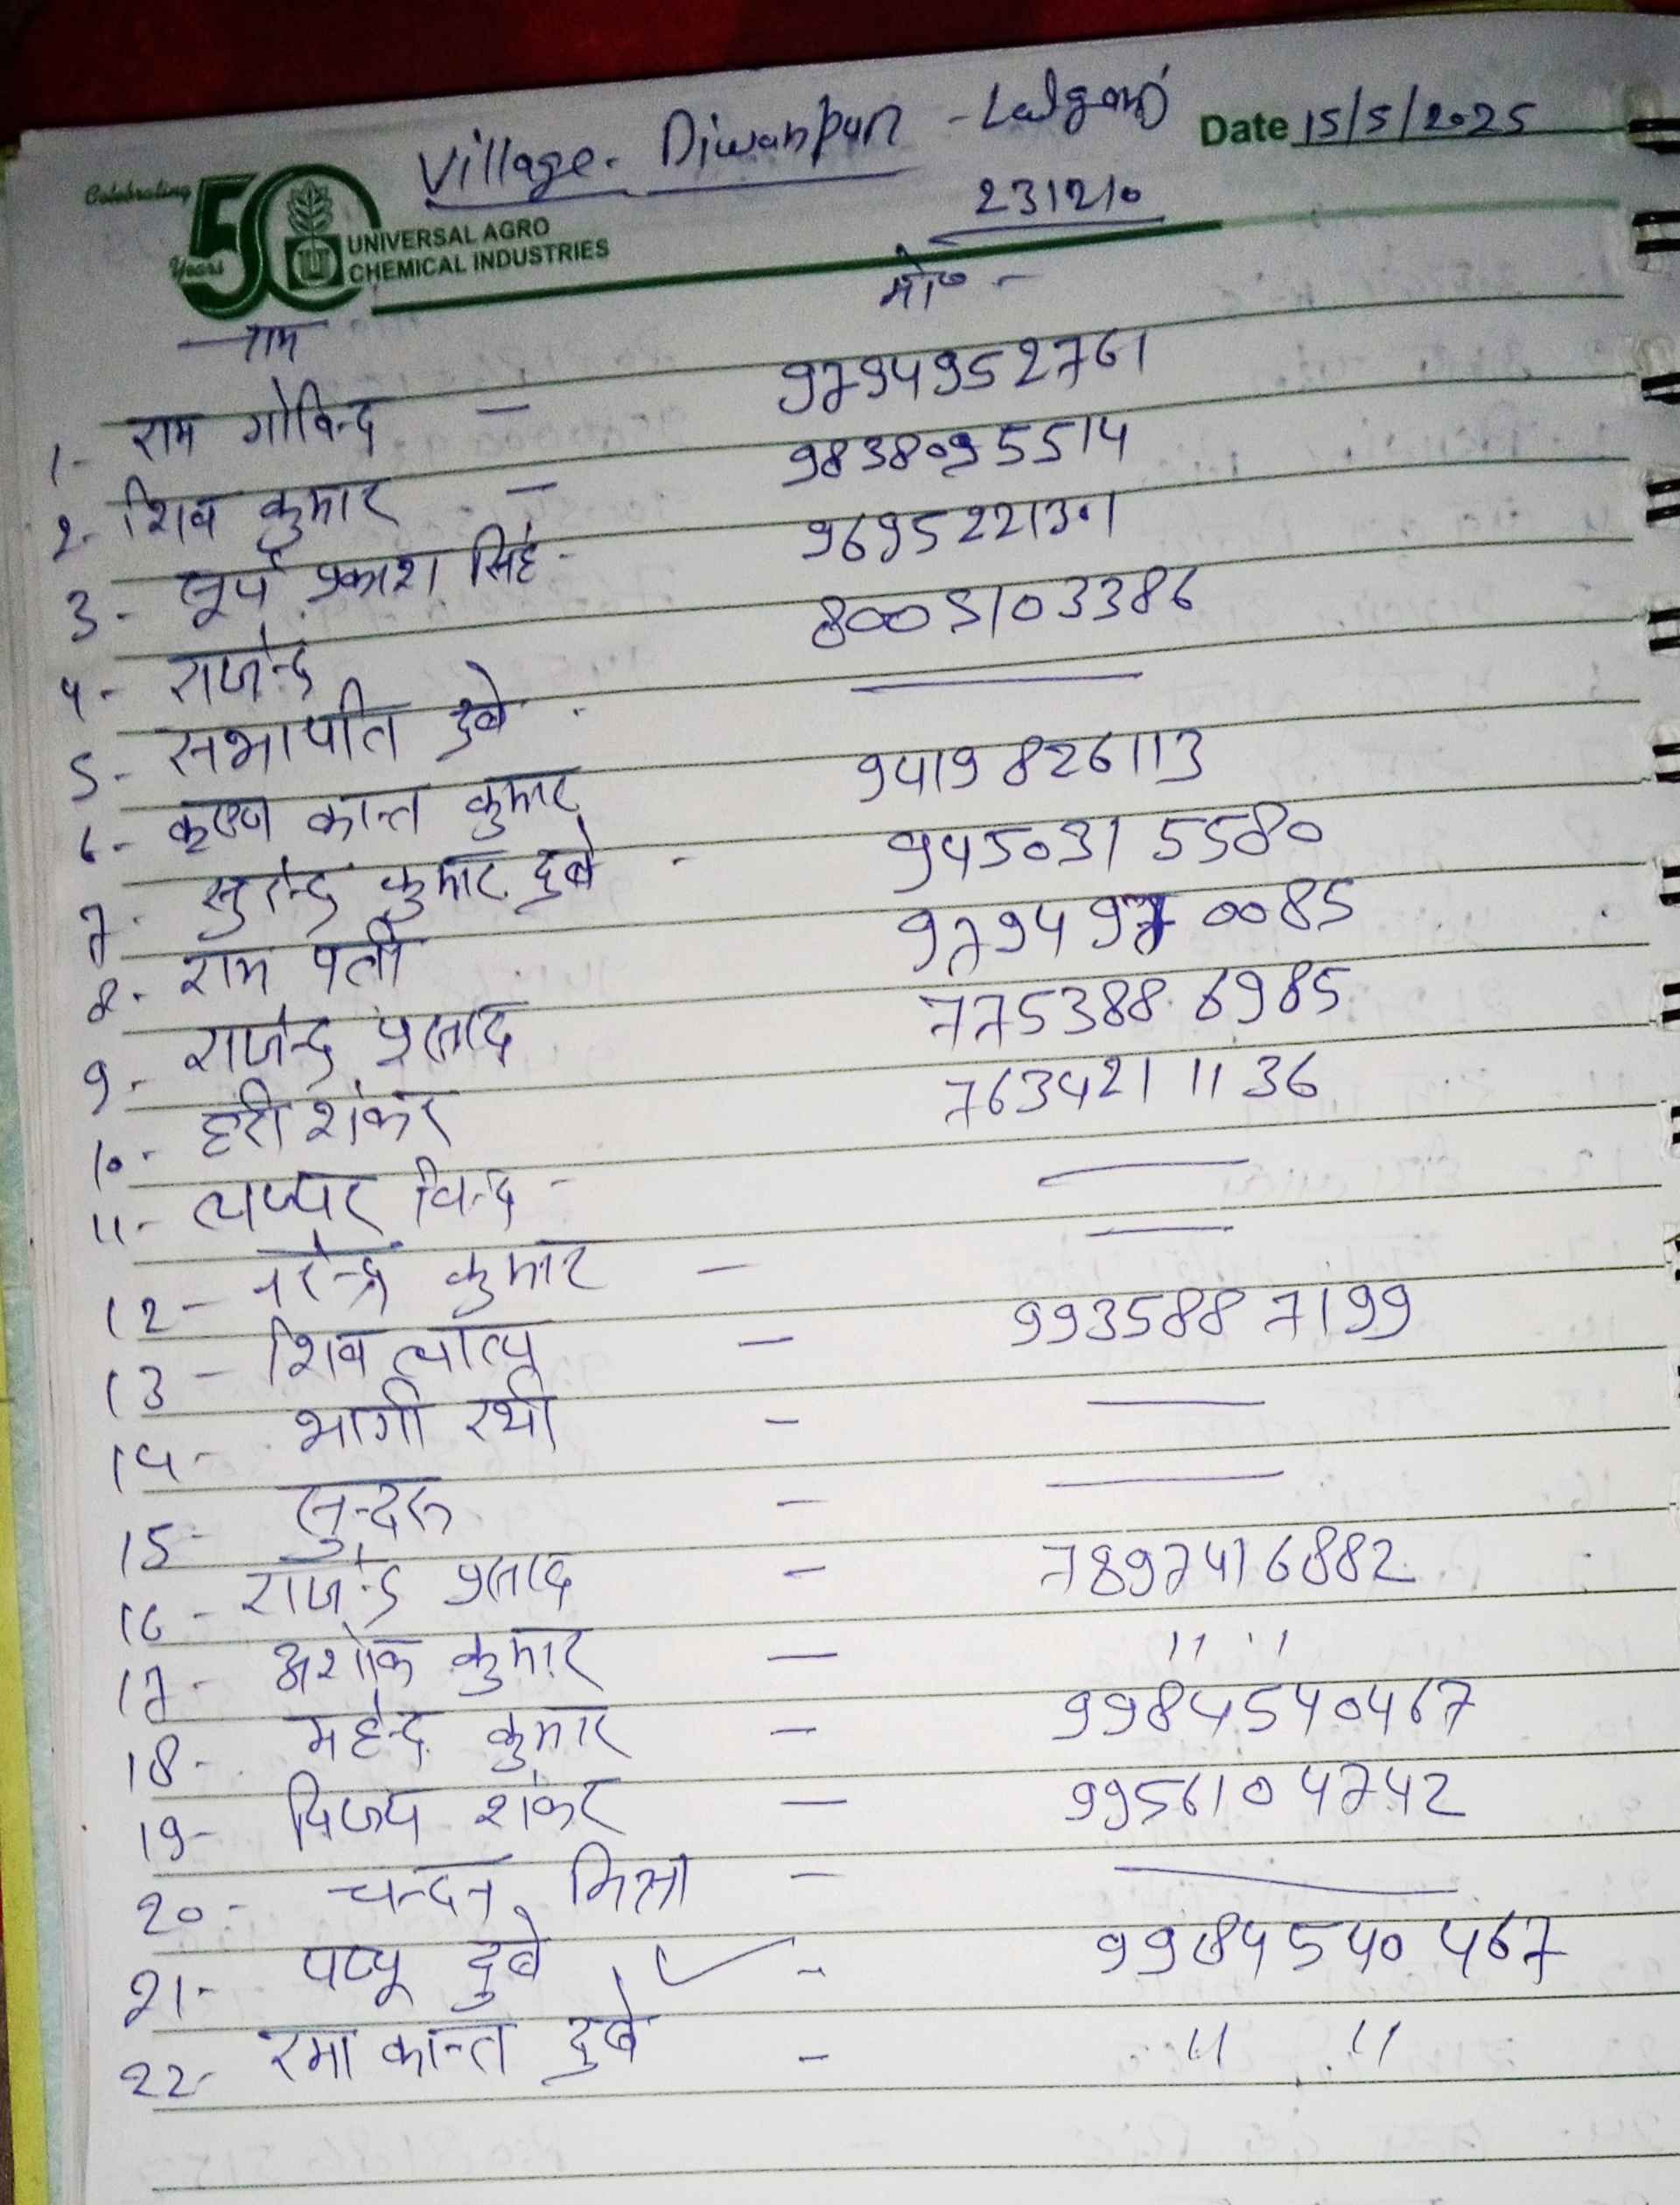 Village. Diwanpur - Lalganj Date 15/5/2025
231210
Celebrating 50 Years
UNIVERSAL AGRO
CHEMICAL INDUSTRIES
नाम मो० -
1- राम गोविन्द - 9794952761
2- शिव कुमार - 9838095514
3- सूर्य प्रकाश सिंह - 9695221301
4- राजेन्द्र 8005103386
5- सभापति दुबे - —
6- कृष्ण कान्त कुमार 9419826113
7- सुरेन्द्र कुमार दुबे - 9450315580
8- राम पती 9794970085
9- राजेन्द्र प्रसाद 7753886985
10- हरी शंकर 7634211136
11- विन्द - —
12- नरेन्द्र कुमार - —
13- शिव - 9935887199
14- भागी रथी - —
15- सुन्दरु - —
16- राजेन्द्र प्रसाद - 7897416882
17- अशोक कुमार - " "
18- महेन्द्र कुमार - 9984540467
19- विजय शंकर - 9956104742
20- चन्दन मिश्रा - —
21- पप्पू दुबे ✓ - 9984540467
22- रमा कान्त दुबे - " "